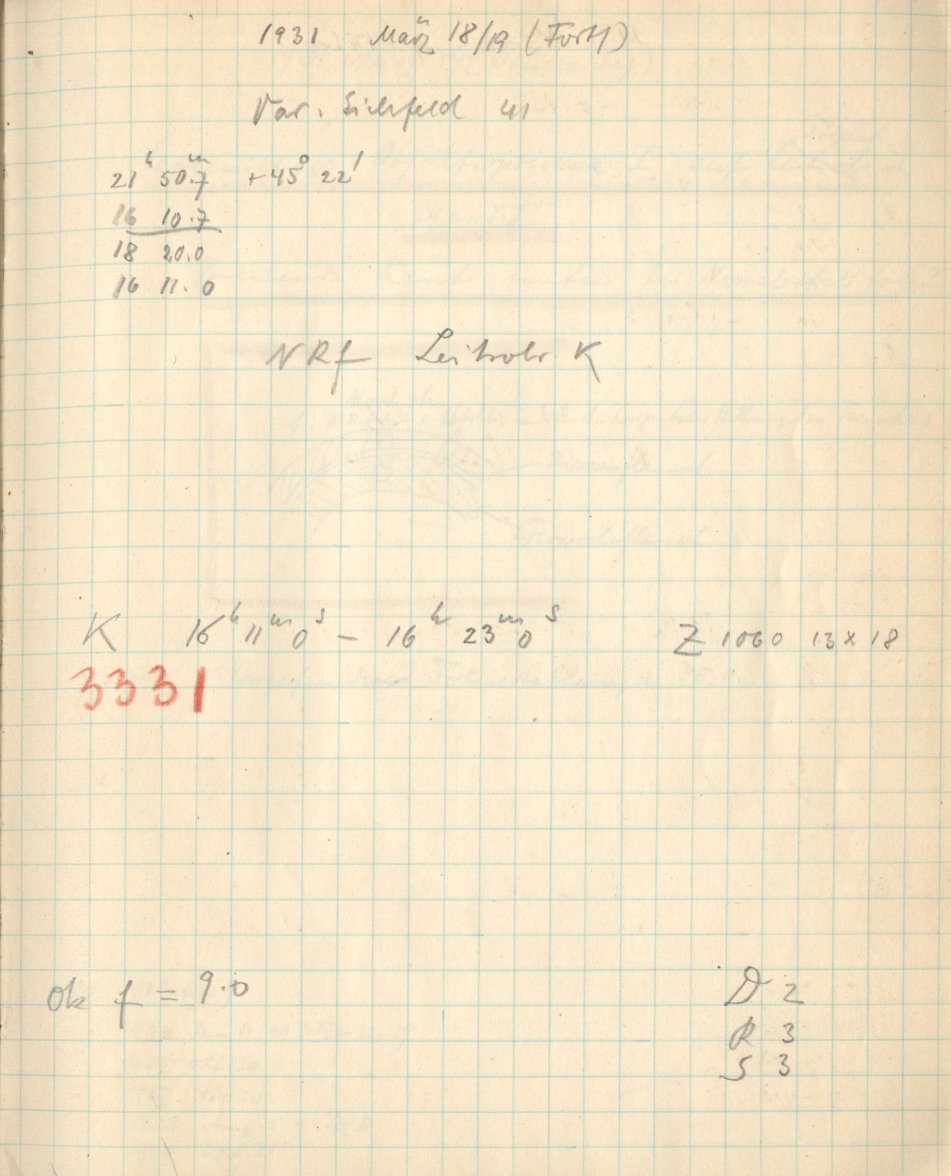 1931 März 18/19 (Forts)
Var. Sichfeld 41
21ʰ 50ᵐ.7 +45° 22'
16 10.7
18 20.0
16 11.0
NRf Leitrohr K
K 16ʰ11ᵐ0ˢ – 16ʰ 23ᵐ0ˢ Z 1060 13x18
3331
ok f = 9.0
D 2
R 3
S 3